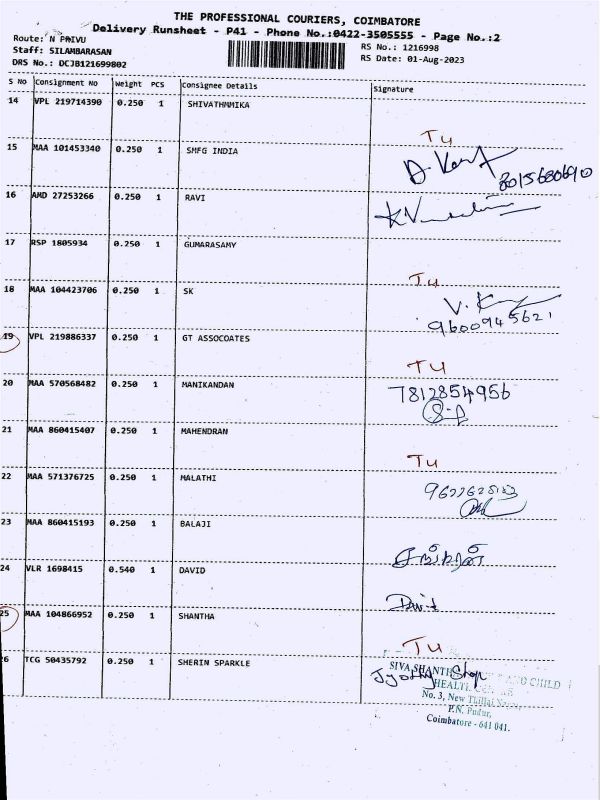 THE PROFESSIONAL COURIERS, COIMBATORE
Delivery Runsheet - P41 - Phone No.:0422-3505555 - Page No.:2
Route: N PRIVU
Staff: SILAMBARASAN
DRS No.: DCJB121699802
RS No.: 1216998
RS Date: 01-Aug-2023
S No Consignment No Weight PCS Consignee Details Signature
14 VPL 219714390 0.250 1 SHIVATHMMIKA
TU
15 MAA 101453340 0.250 1 SMFG INDIA
8015680690
16 AMD 27253266 0.250 1 RAVI
17 RSP 1805934 0.250 1 GUMARASAMY
TU
18 MAA 104423706 0.250 1 SK
9600945621
19 VPL 219886337 0.250 1 GT ASSOCOATES
TU
20 MAA 570568482 0.250 1 MANIKANDAN
7812854956
21 MAA 860415407 0.250 1 MAHENDRAN
TU
22 MAA 571376725 0.250 1 MALATHI
23 MAA 860415193 0.250 1 BALAJI
24 VLR 1698415 0.540 1 DAVID
25 MAA 104866952 0.250 1 SHANTHA
TU
26 TCG 50435792 0.250 1 SHERIN SPARKLE
SIVA SHANTHI AND CHILD
Jyothy Shop
HEALTH
No. 3, New Thillai
P.N. Pudur,
Coimbatore - 641 041.